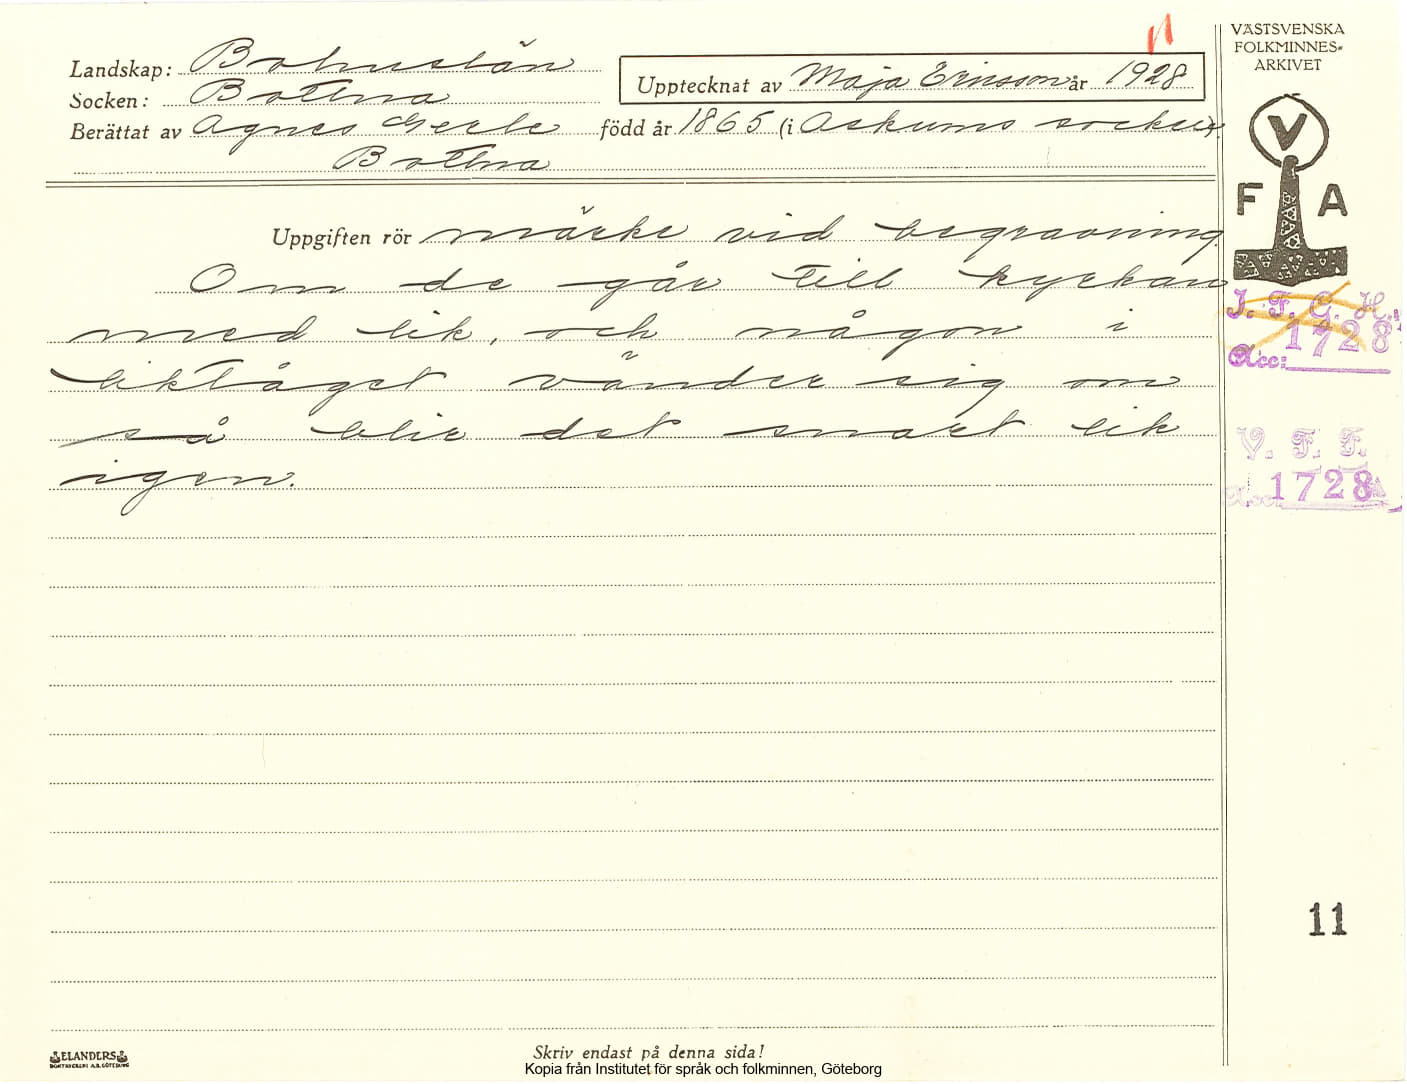 VÄSTSVENSKA
FOLKMINNES-
ARKIVET
Landskap: Bohuslän
Upptecknat av Maja Ericsson år 1928
Socken: Bottna
Berättat av Agnes Gerle född år 1865 (i Askums socken).
Bottna
V
F A
Uppgiften rör märke vid begravning
Om de går till kyrkan
med lik, och någon i
liktåget vänder sig om
så blir det snart lik
igen.
I. F. G. H.
1728
Acc:
V. F. F.
Acc: 1728
11
ELANDERS
BOKTRYCKERI A.B. GÖTEBORG
Skriv endast på denna sida!
Kopia från Institutet för språk och folkminnen, Göteborg